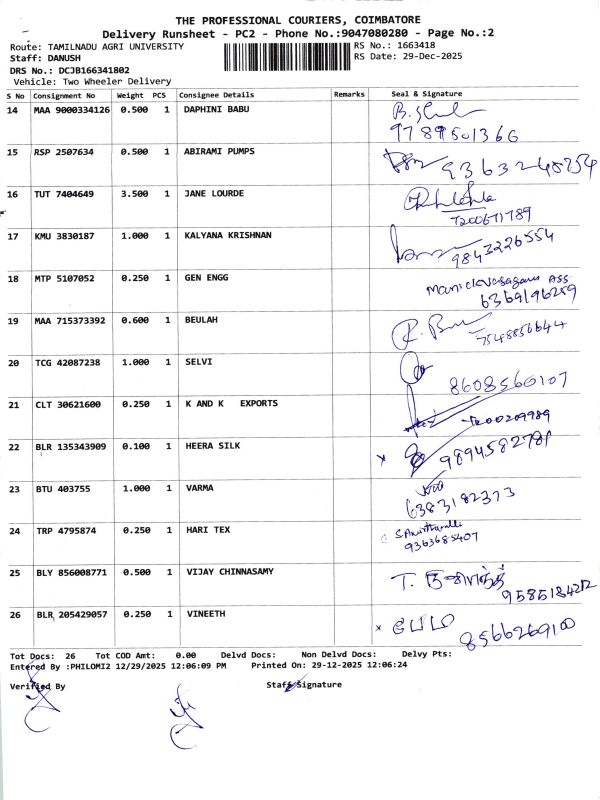 THE PROFESSIONAL COURIERS, COIMBATORE
Delivery Runsheet - PC2 - Phone No.:9047080280 - Page No.:2
Route: TAMILNADU AGRI UNIVERSITY RS No.: 1663418
Staff: DANUSH RS Date: 29-Dec-2025
DRS No.: DCJB166341802
Vehicle: Two Wheeler Delivery
S No Consignment No Weight PCS Consignee Details Remarks Seal & Signature
14 MAA 9000334126 0.500 1 DAPHINI BABU
9789501366
15 RSP 2507634 0.500 1 ABIRAMI PUMPS
9363248254
16 TUT 7404649 3.500 1 JANE LOURDE
7200671789
17 KMU 3830187 1.000 1 KALYANA KRISHNAN
9843226554
18 MTP 5107052 0.250 1 GEN ENGG
6369196259
19 MAA 715373392 0.600 1 BEULAH
7548856644
20 TCG 42087238 1.000 1 SELVI
8608560107
21 CLT 30621600 0.250 1 K AND K EXPORTS
7200209989
22 BLR 135343909 0.100 1 HEERA SILK
9894582781
23 BTU 403755 1.000 1 VARMA
6383182373
24 TRP 4795874 0.250 1 HARI TEX
9363685407
25 BLY 856008771 0.500 1 VIJAY CHINNASAMY
9585184212
26 BLR 205429057 0.250 1 VINEETH
x பேபி
8566269100
Tot Docs: 26 Tot COD Amt: 0.00 Delvd Docs: Non Delvd Docs: Delvy Pts:
Entered By :PHILOMI2 12/29/2025 12:06:09 PM Printed On: 29-12-2025 12:06:24
Verified By Staff Signature